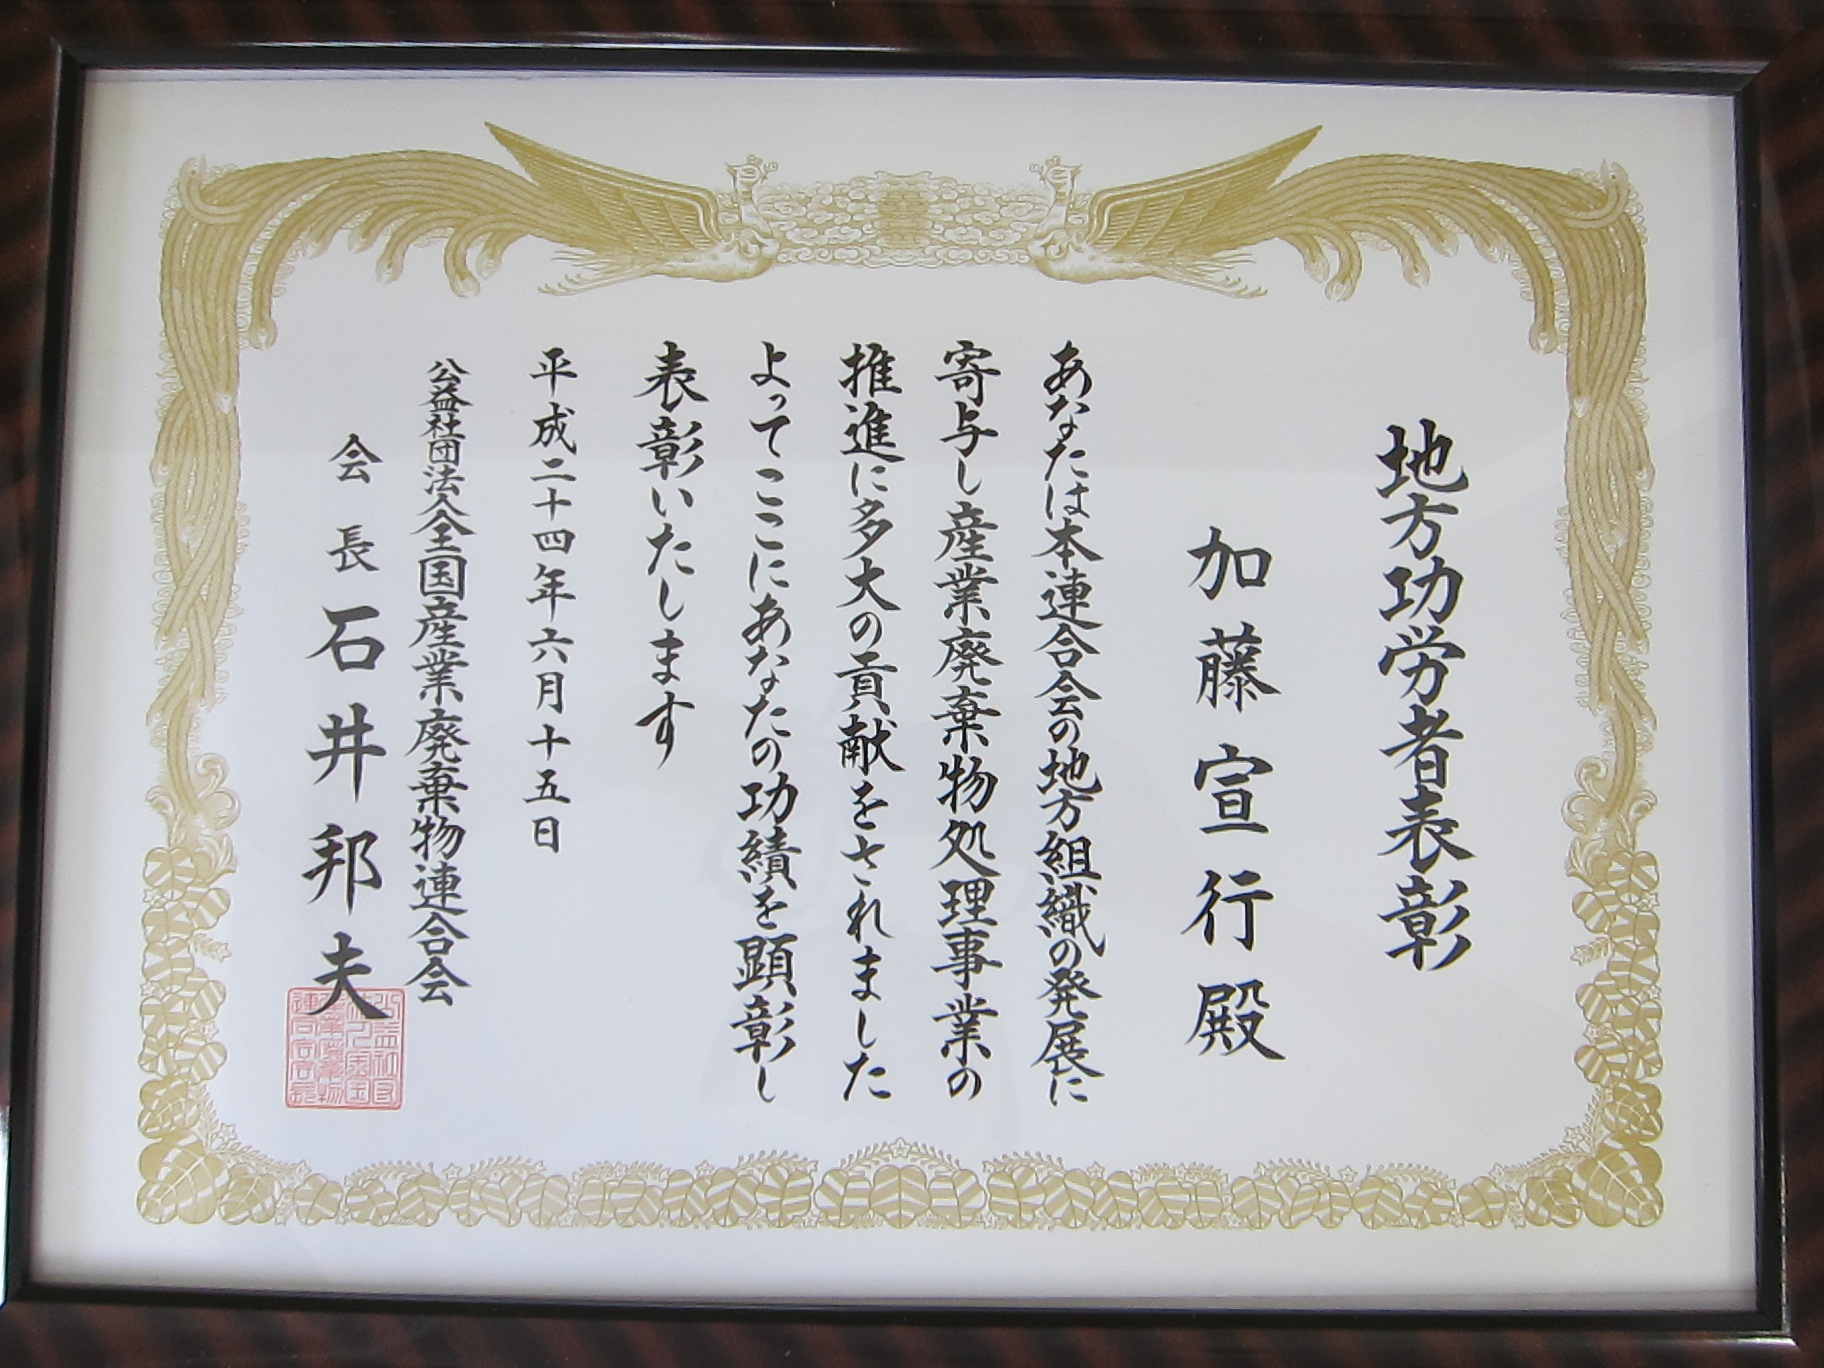 地方功労者表彰
加藤宣行殿
あなたは本連合会の地方組織の発展に
寄与し産業廃棄物処理事業の
推進に多大の貢献をされました
よってここにあなたの功績を顕彰し
表彰いたします
平成二十四年六月十五日
公益社団法人全国産業廃棄物連合会
会長石井邦夫